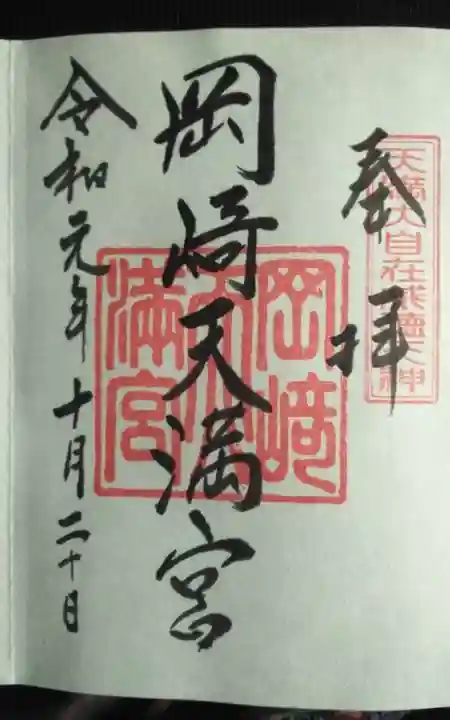 奉拝
天満大自在威徳天神
岡崎天満宮
岡﨑天満宮
令和元年十月二十日